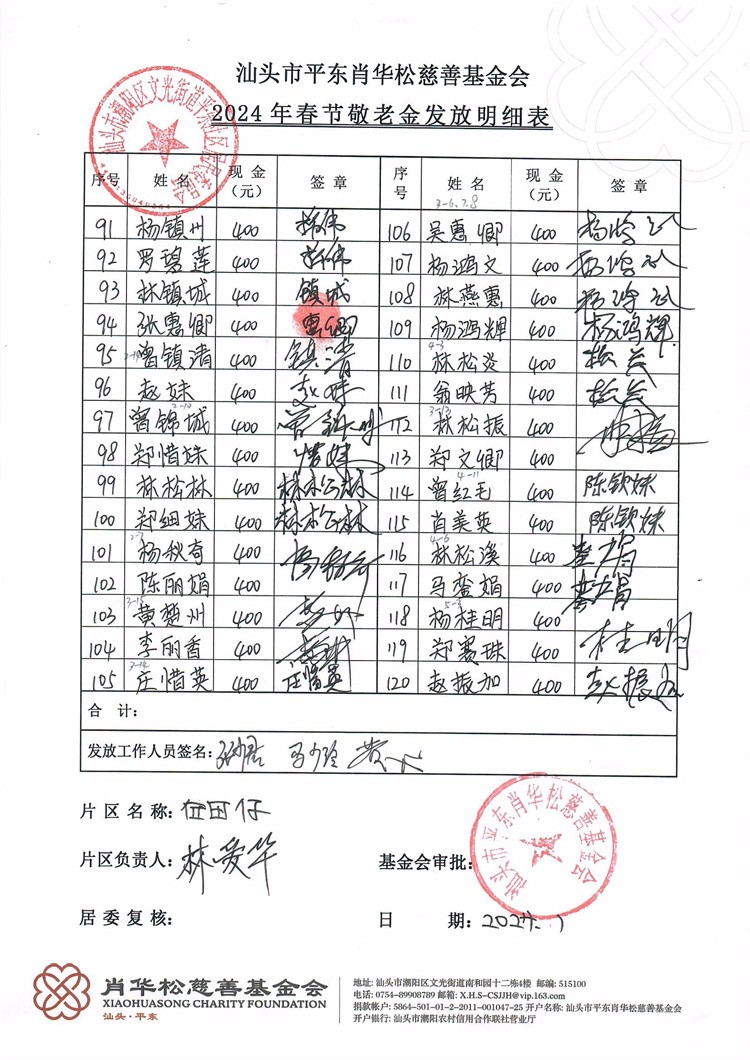 汕头市平东肖华松慈善基金会
2024年春节敬老金发放明细表
序号 姓名 现金（元） 签章 序号 姓名 现金（元） 签章
3-6.7.8
91 杨镇州 400 106 吴惠卿 400
92 罗碧莲 400 107 杨鸿文 400
93 林镇城 400 镇城 108 林燕惠 400
94 张惠卿 400 惠卿 109 杨鸿辉 400 杨鸿辉
95 曾镇清 400 镇清 110 林松炎 400
96 赵妹 400 赵妹 111 翁映芳 400
97 曾锦诚 400 112 林松振 400
98 郑惜妹 400 惜妹 113 郑文卿 400
99 林松林 400 林松林 114 曾红毛 400 陈钦妹
100 郑细妹 400 林松林 115 肖美英 400 陈钦妹
101 杨秋奇 400 116 林松溪 400
102 陈丽娟 400 117 马銮娟 400
103 黄楚州 400 118 杨桂明 400 桂明
104 李丽香 400 119 郑赛珠 400
105 庄惜英 400 庄惜英 120 赵振加 400 赵振加
合计:
发放工作人员签名:
片区名称:
片区负责人: 林爱华
基金会审批:
居委复核:
日期: 2024.1
汕头市平东肖华松慈善基金会
肖华松慈善基金会
XIAOHUASONG CHARITY FOUNDATION
汕头·平东
地址: 汕头市潮阳区文光街道南和园十二栋4楼 邮编: 515100
电话: 0754-89908789 邮箱: X.H.S-CSJJH@vip.163.com
捐款帐户: 5864-501-01-2-2011-001047-25 开户名称: 汕头市平东肖华松慈善基金会
开户银行: 汕头市潮阳农村信用合作联社营业厅